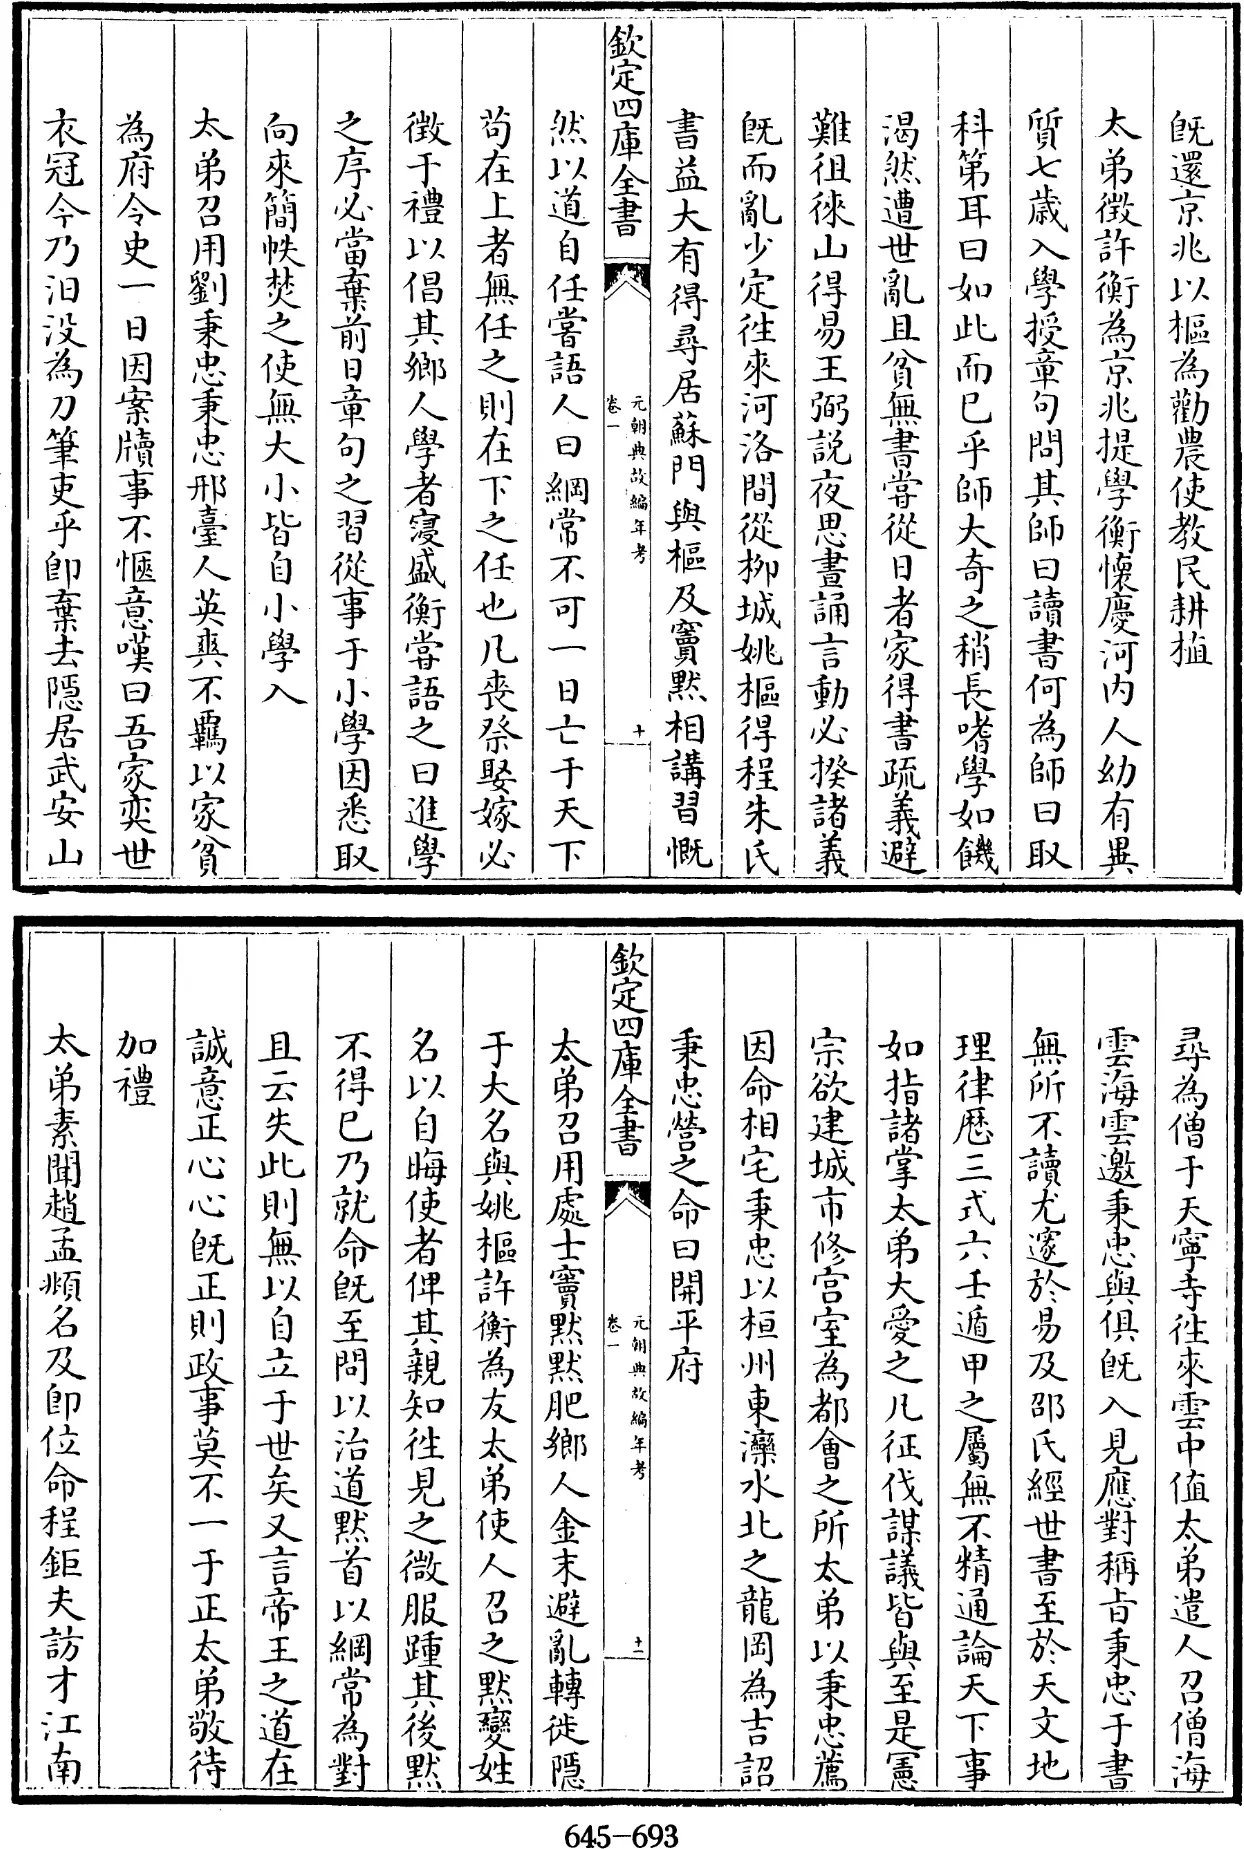 既還京兆以樞為勸農使教民耕植
太弟徵許衡為京兆提學衡懷慶河内人幼有異
質七歲入學授章句問其師曰讀書何為師曰取
科第耳曰如此而已乎師大奇之稍長嗜學如饑
渴然遭世亂且貧無書嘗從日者家得書疏義避
難徂徠山得易王弼説夜思晝誦言動必揆諸義
既而亂少定徃來河洛間從柳城姚樞得程朱氏
書益大有得尋居蘇門與樞及竇默相講習慨
欽定四庫全書
元朝典故編年考
卷一
十
然以道自任嘗語人曰綱常不可一日亡于天下
苟在上者無任之則在下之任也凡喪祭娶嫁必
徵于禮以倡其鄉人學者寖盛衡嘗語之曰進學
之序必當棄前日章句之習從事于小學因悉取
向來簡帙焚之使無大小皆自小學入
太弟召用劉秉忠秉忠邢臺人英爽不羈以家貧
為府令史一日因案牘事不愜意嘆曰吾家奕世
衣冠今乃汨没為刀筆吏乎即棄去隱居武安山
尋為僧于天寧寺徃來雲中值太弟遣人召僧海
雲海雲邀秉忠與俱既入見應對稱旨秉忠于書
無所不讀尤邃於易及邵氏經世書至於天文地
理律厯三式六壬遁甲之屬無不精通論天下事
如指諸掌太弟大愛之凡征伐謀議皆與至是憲
宗欲建城市修宫室為都會之所太弟以秉忠薦
因命相宅秉忠以桓州東灤水北之龍岡為吉詔
秉忠營之命曰開平府
欽定四庫全書
元朝典故編年考
卷一
十一
太弟召用處士竇默默肥鄉人金末避亂轉徙隱
于大名與姚樞許衡為友太弟使人召之默變姓
名以自晦使者俾其親知徃見之微服踵其後默
不得已乃就命既至問以治道默首以綱常為對
且云失此則無以自立于世矣又言帝王之道在
誠意正心心既正則政事莫不一于正太弟敬待
加禮
太弟素聞趙孟頫名及即位命程鉅夫訪才江南
645-693